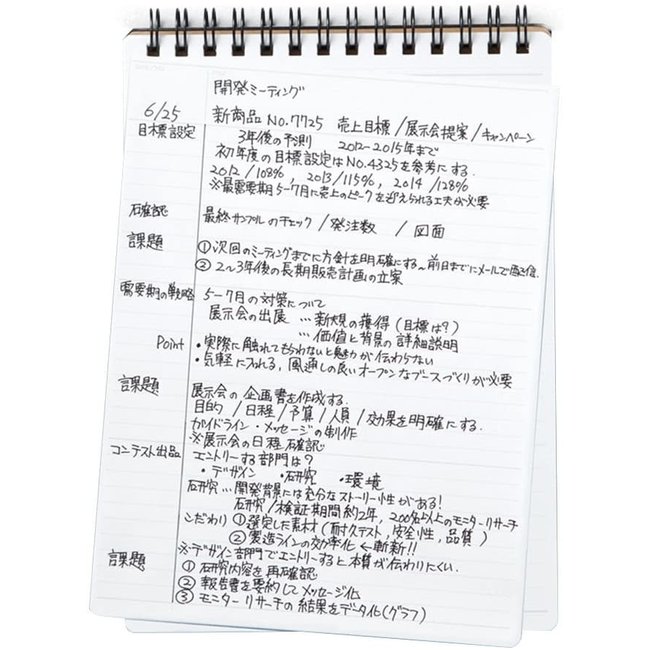 開発ミーティング
6/25 新商品 No.7725 売上目標/展示会提案/キャンペーン
目標設定 3年後の予測 2012-2015年まで
初年度の目標設定はNO.4325を参考にする.
2012/108%, 2013/115%, 2014/128%
※最需要期5-7月に売上のピークを迎えられる工夫が必要
石確認 最終サンプルのチェック/発注数 /図面
課題 ①次回のミーティングまでに方針を明確にする→前日までにメールで配信.
②2~3年後の長期販売計画の立案
需要期の戦略 5-7月の対策について
展示会の出展 …新規の獲得(目標は?)
…価値と背景の詳細説明
Point ・実際に触れてもらわないと魅力が伝わらない
・気軽に入れる, 風通しの良いオープンなブースづくりが必要
課題 展示会の企画書を作成する.
目的/日程/予算/人員/効果を明確にする.
ガイドライン・メッセージの制作
※展示会の日程確認
コンテスト出品 エントリーする部門は?
・デザイン ・研究 ・環境
研究…開発背景には充分なストーリー性がある!
研究/検証期間約2年, 200名以上のモニターリサーチ
こだわり ①選定した素材(耐久テスト,安全性,品質)
②製造ラインの効率化 ←斬新!!
※デザイン部門でエントリーすると本質が伝わりにくい.
課題 ①研究内容を再確認
②報告書を要約してメッセージ化
③モニターリサーチの結果をデータ化(グラフ)